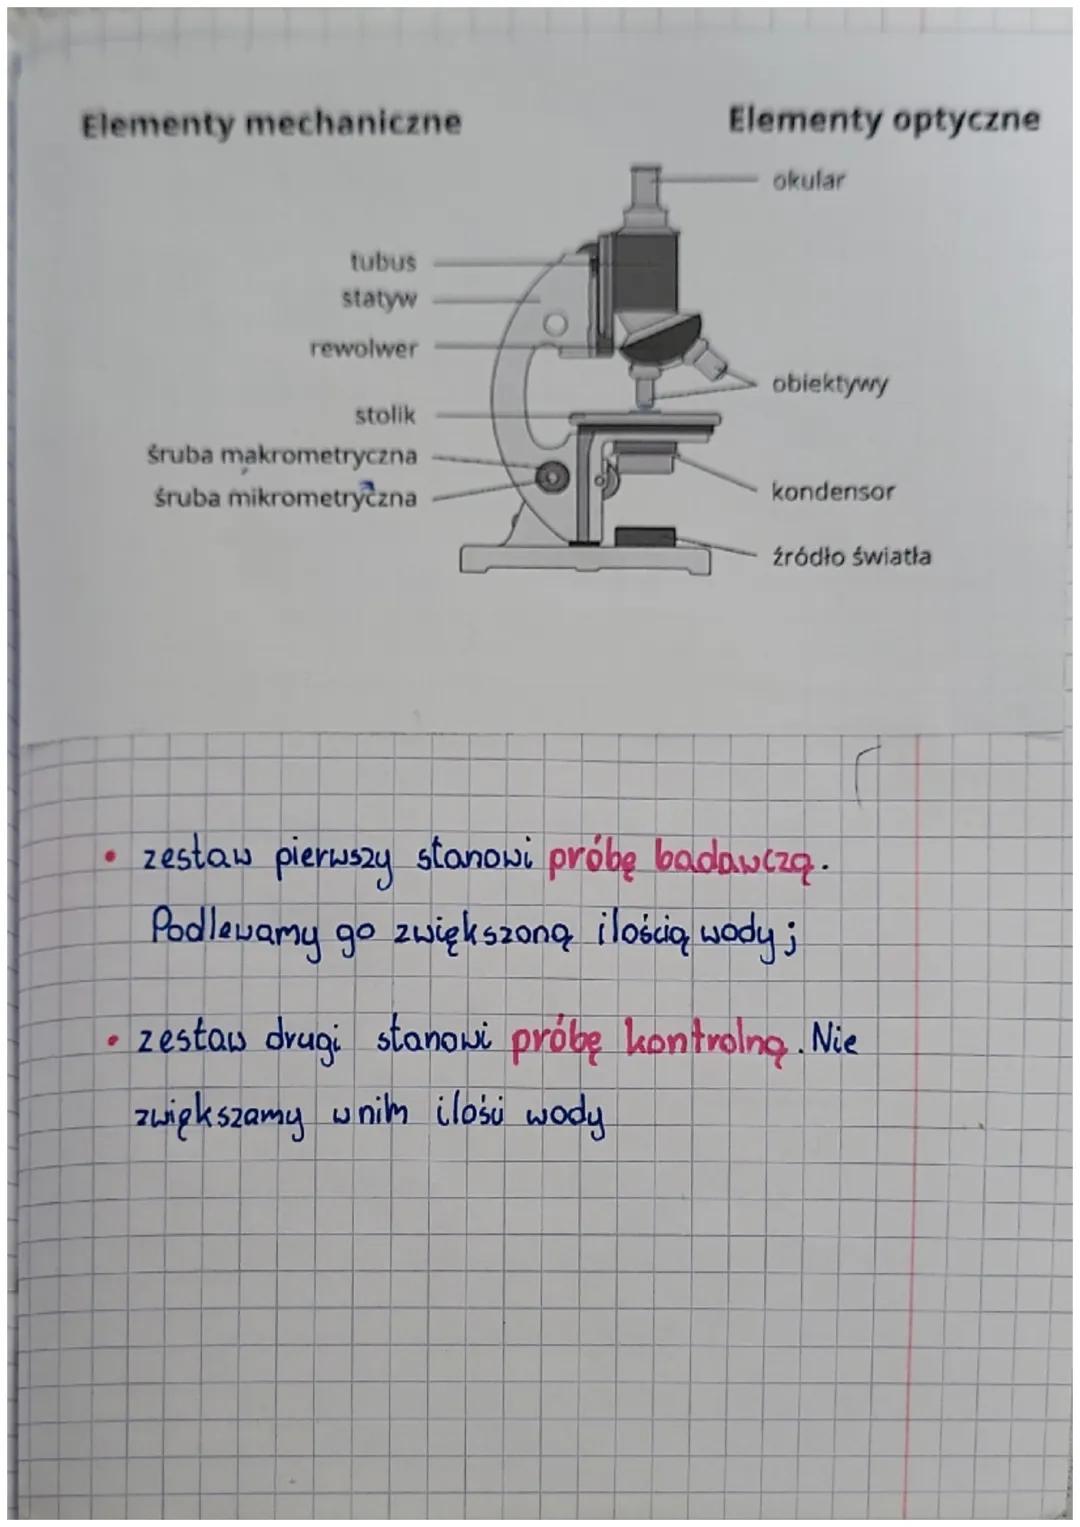 Elementy mechaniczne
Elementy optyczne
okular
tubus
statyw
rewolwer
obiektywy
stolik
śruba makrometryczna
śruba mikrometryczna
kondensor
źródło światła
• zestaw pierwszy stanowi próbę badawczą.
Podlewamy go zwiększoną ilością wody;
• zestaw drugi stanowi próbę kontrolną. Nie
zwiększamy w nim ilości wody